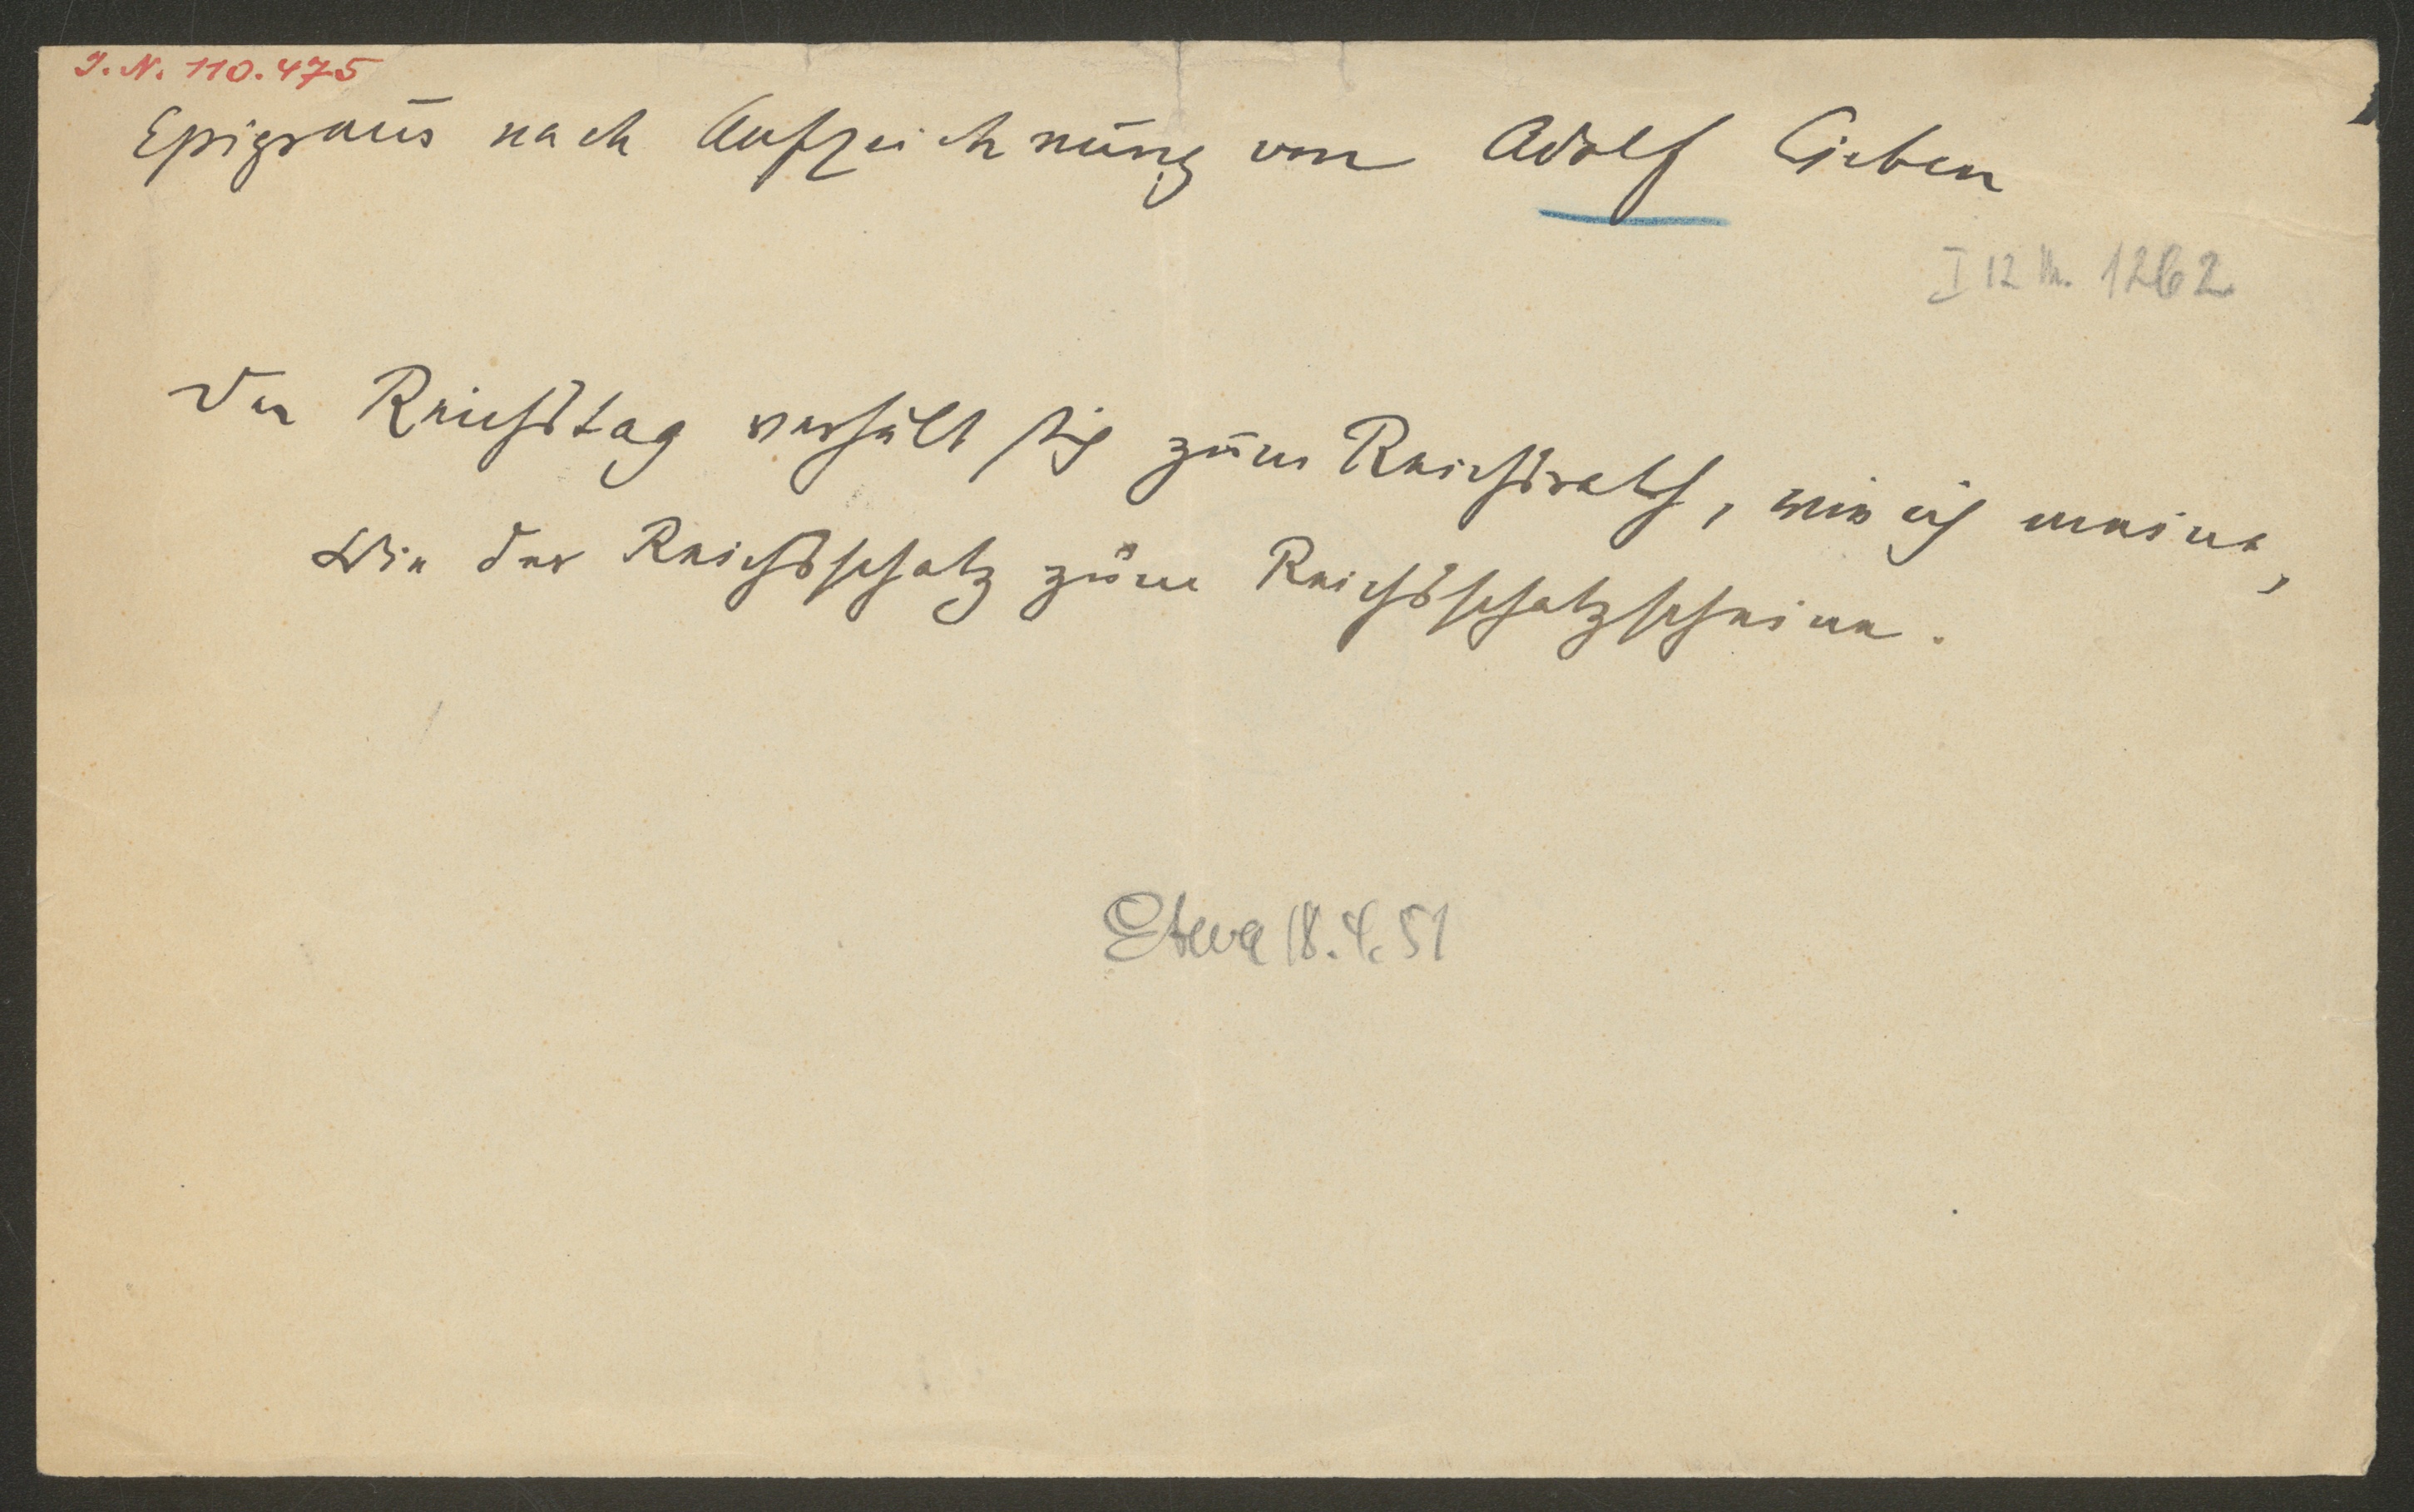 I. N. 110.475
Epigram̅ nach Aufzeichnung von Adolf Lieben
I 12 Nr. 1262
Der Reichstag verhält sich zum Reichsrath, wie ich meine,
Wie der Reichsschatz zum Reichsschatzscheine.
18.4.51